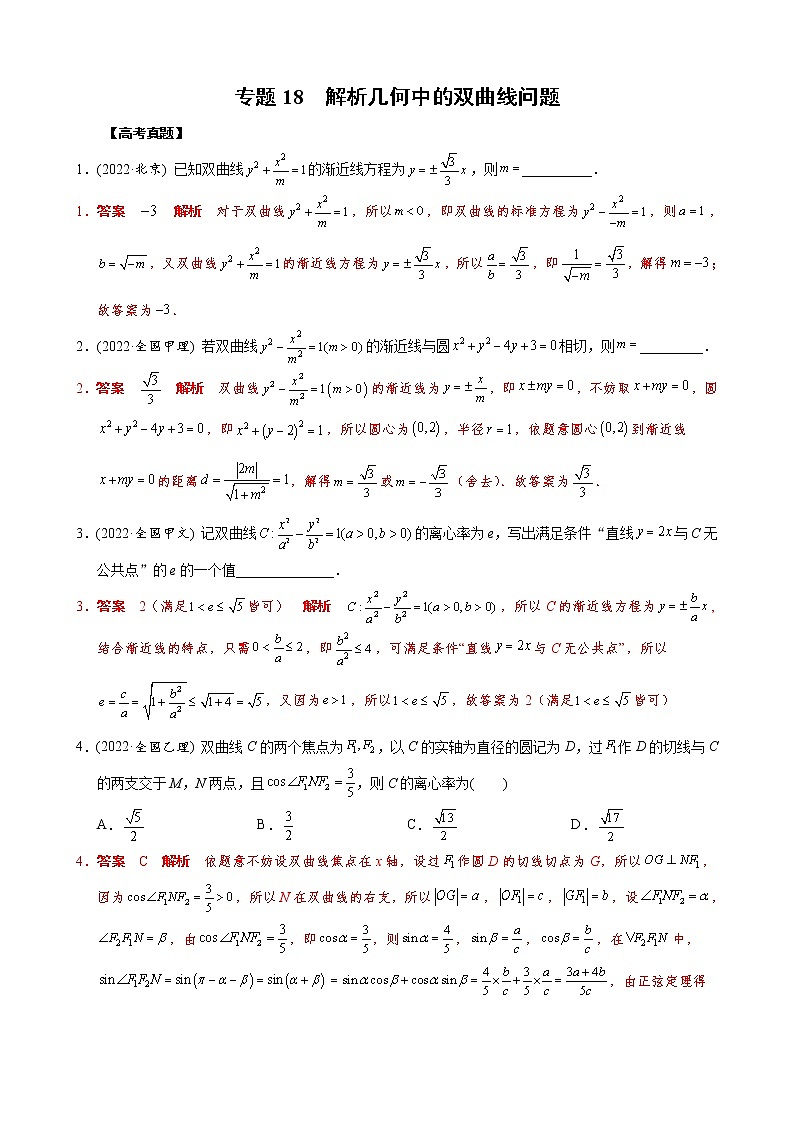 专题 18　解析几何中的双曲线问题
【高考真题】
1．(2022·北京) 已知双曲线 y² + x²/m = 1 的渐近线方程为 y = ±(√3/3)x，则 m = __________．
1．答案　−3　解析　对于双曲线 y² + x²/m = 1，所以 m < 0，即双曲线的标准方程为 y² − x²/(−m) = 1，则 a = 1，
b = √(−m)，又双曲线 y² + x²/m = 1 的渐近线方程为 y = ±(√3/3)x，所以 a/b = √3/3，即 1/√(−m) = √3/3，解得 m = −3；
故答案为 −3．
2．(2022·全国甲理) 若双曲线 y² − x²/m² = 1(m > 0) 的渐近线与圆 x² + y² − 4y + 3 = 0 相切，则 m = _________．
2．答案　√3/3　解析　双曲线 y² − x²/m² = 1(m > 0) 的渐近线为 y = ±x/m，即 x ± my = 0，不妨取 x + my = 0，圆
x² + y² − 4y + 3 = 0，即 x² + (y − 2)² = 1，所以圆心为 (0,2)，半径 r = 1，依题意圆心 (0,2) 到渐近线
x + my = 0 的距离 d = |2m|/√(1 + m²) = 1，解得 m = √3/3 或 m = −√3/3（舍去）．故答案为 √3/3．
3．(2022·全国甲文) 记双曲线 C : x²/a² − y²/b² = 1(a > 0, b > 0) 的离心率为 e，写出满足条件“直线 y = 2x 与 C 无
公共点”的 e 的一个值______________．
3．答案　2（满足 1 < e ≤ √5 皆可）　解析　C : x²/a² − y²/b² = 1(a > 0, b > 0)，所以 C 的渐近线方程为 y = ±(b/a)x，
结合渐近线的特点，只需 0 < b/a ≤ 2，即 b²/a² ≤ 4，可满足条件“直线 y = 2x 与 C 无公共点”，所以
e = c/a = √(1 + b²/a²) ≤ √(1 + 4) = √5，又因为 e > 1，所以 1 < e ≤ √5，故答案为 2（满足 1 < e ≤ √5 皆可）
4．(2022·全国乙理) 双曲线 C 的两个焦点为 F₁,F₂，以 C 的实轴为直径的圆记为 D，过 F₁ 作 D 的切线与 C
的两支交于 M，N 两点，且 cos∠F₁NF₂ = 3/5，则 C 的离心率为(　　)
A．√5/2　　B．3/2　　C．√13/2　　D．√17/2
4．答案　C　解析　依题意不妨设双曲线焦点在 x 轴，设过 F₁ 作圆 D 的切线切点为 G，所以 OG ⊥ NF₁，
因为 cos∠F₁NF₂ = 3/5 > 0，所以 N 在双曲线的右支，所以 |OG| = a，|OF₁| = c，|GF₁| = b，设 ∠F₁NF₂ = α，
∠F₂F₁N = β，由 cos∠F₁NF₂ = 3/5，即 cosα = 3/5，则 sinα = 4/5，sinβ = a/c，cosβ = b/c，在 VF₂F₁N 中，
sin∠F₁F₂N = sin(π − α − β) = sin(α + β) = sinαcosβ + cosαsinβ = 4/5 × b/c + 3/5 × a/c = (3a + 4b)/5c，由正弦定理得